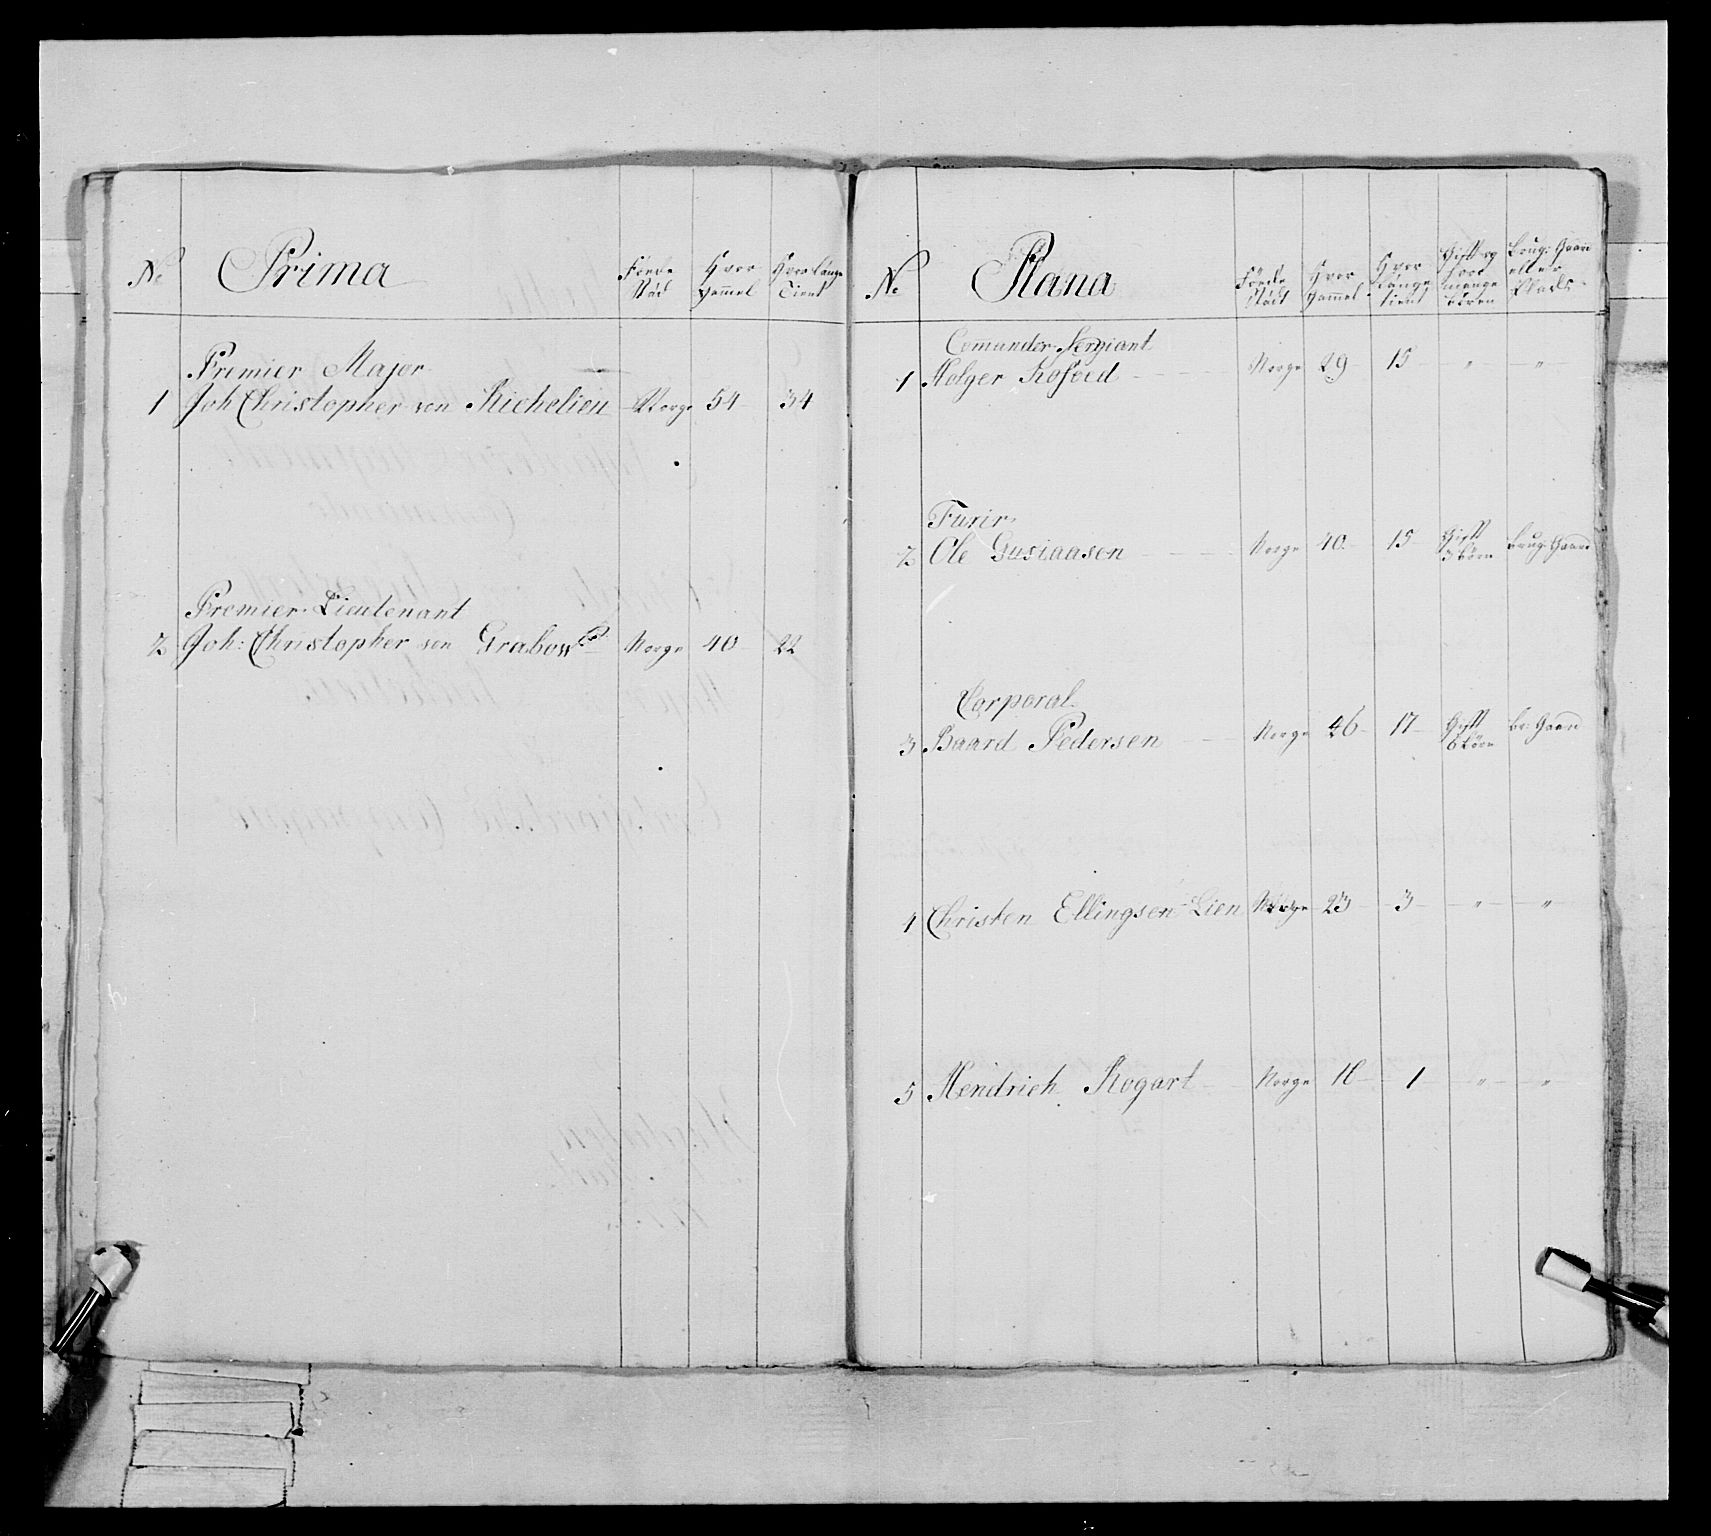 No Prima Føde Stæd Hvor Gammel Hvor Længe Tient
Premier Major
1 Joh Christopher von Richelieu Norge 54 34
Premier Lieutenant
2 Joh: Christopher von Grabow Norge 40 22
No Plana Føde Stæd Hvor Gammel Hvor Længe tient Gift og hvor mange Børn Brug: Gaard eller Plads
Comander Sergiant
1 Holger Rosoed Norge 29 15 " "
Furir
2 Ole Gusiaasen Norge 40 15 Gift 3 Børn Brug: Gaard
Corporal
3 Baard Pedersen Norge 46 17 Gift 6 Børn Br: Gaard
4 Christen Ellingsen Lien Norge 23 3 " "
5 Hendrich Rogart Norge 18 1 " "